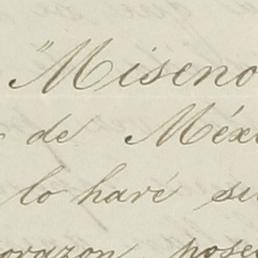 "Miseno
de Méx
lo haré su
corazon, pose